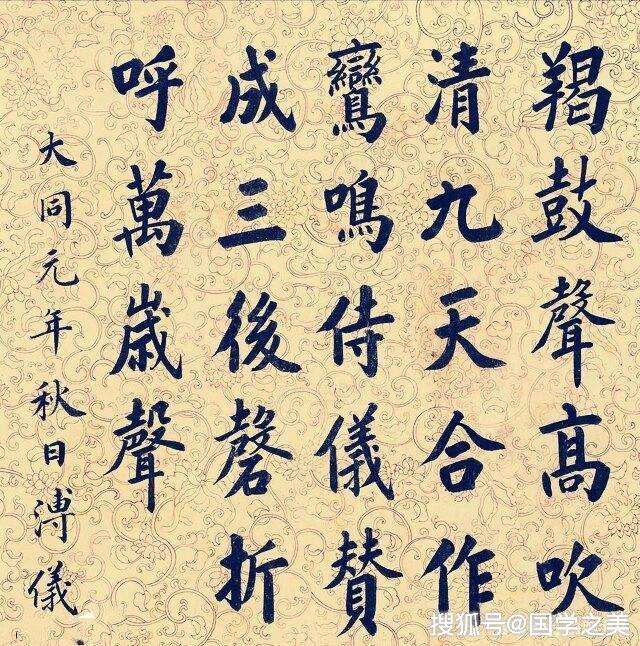 羯鼓聲高吹
清九天合作
鸞鳴侍儀贊
成三後磬折
呼萬歲聲
大同元年秋日溥儀
搜狐号@国学之美